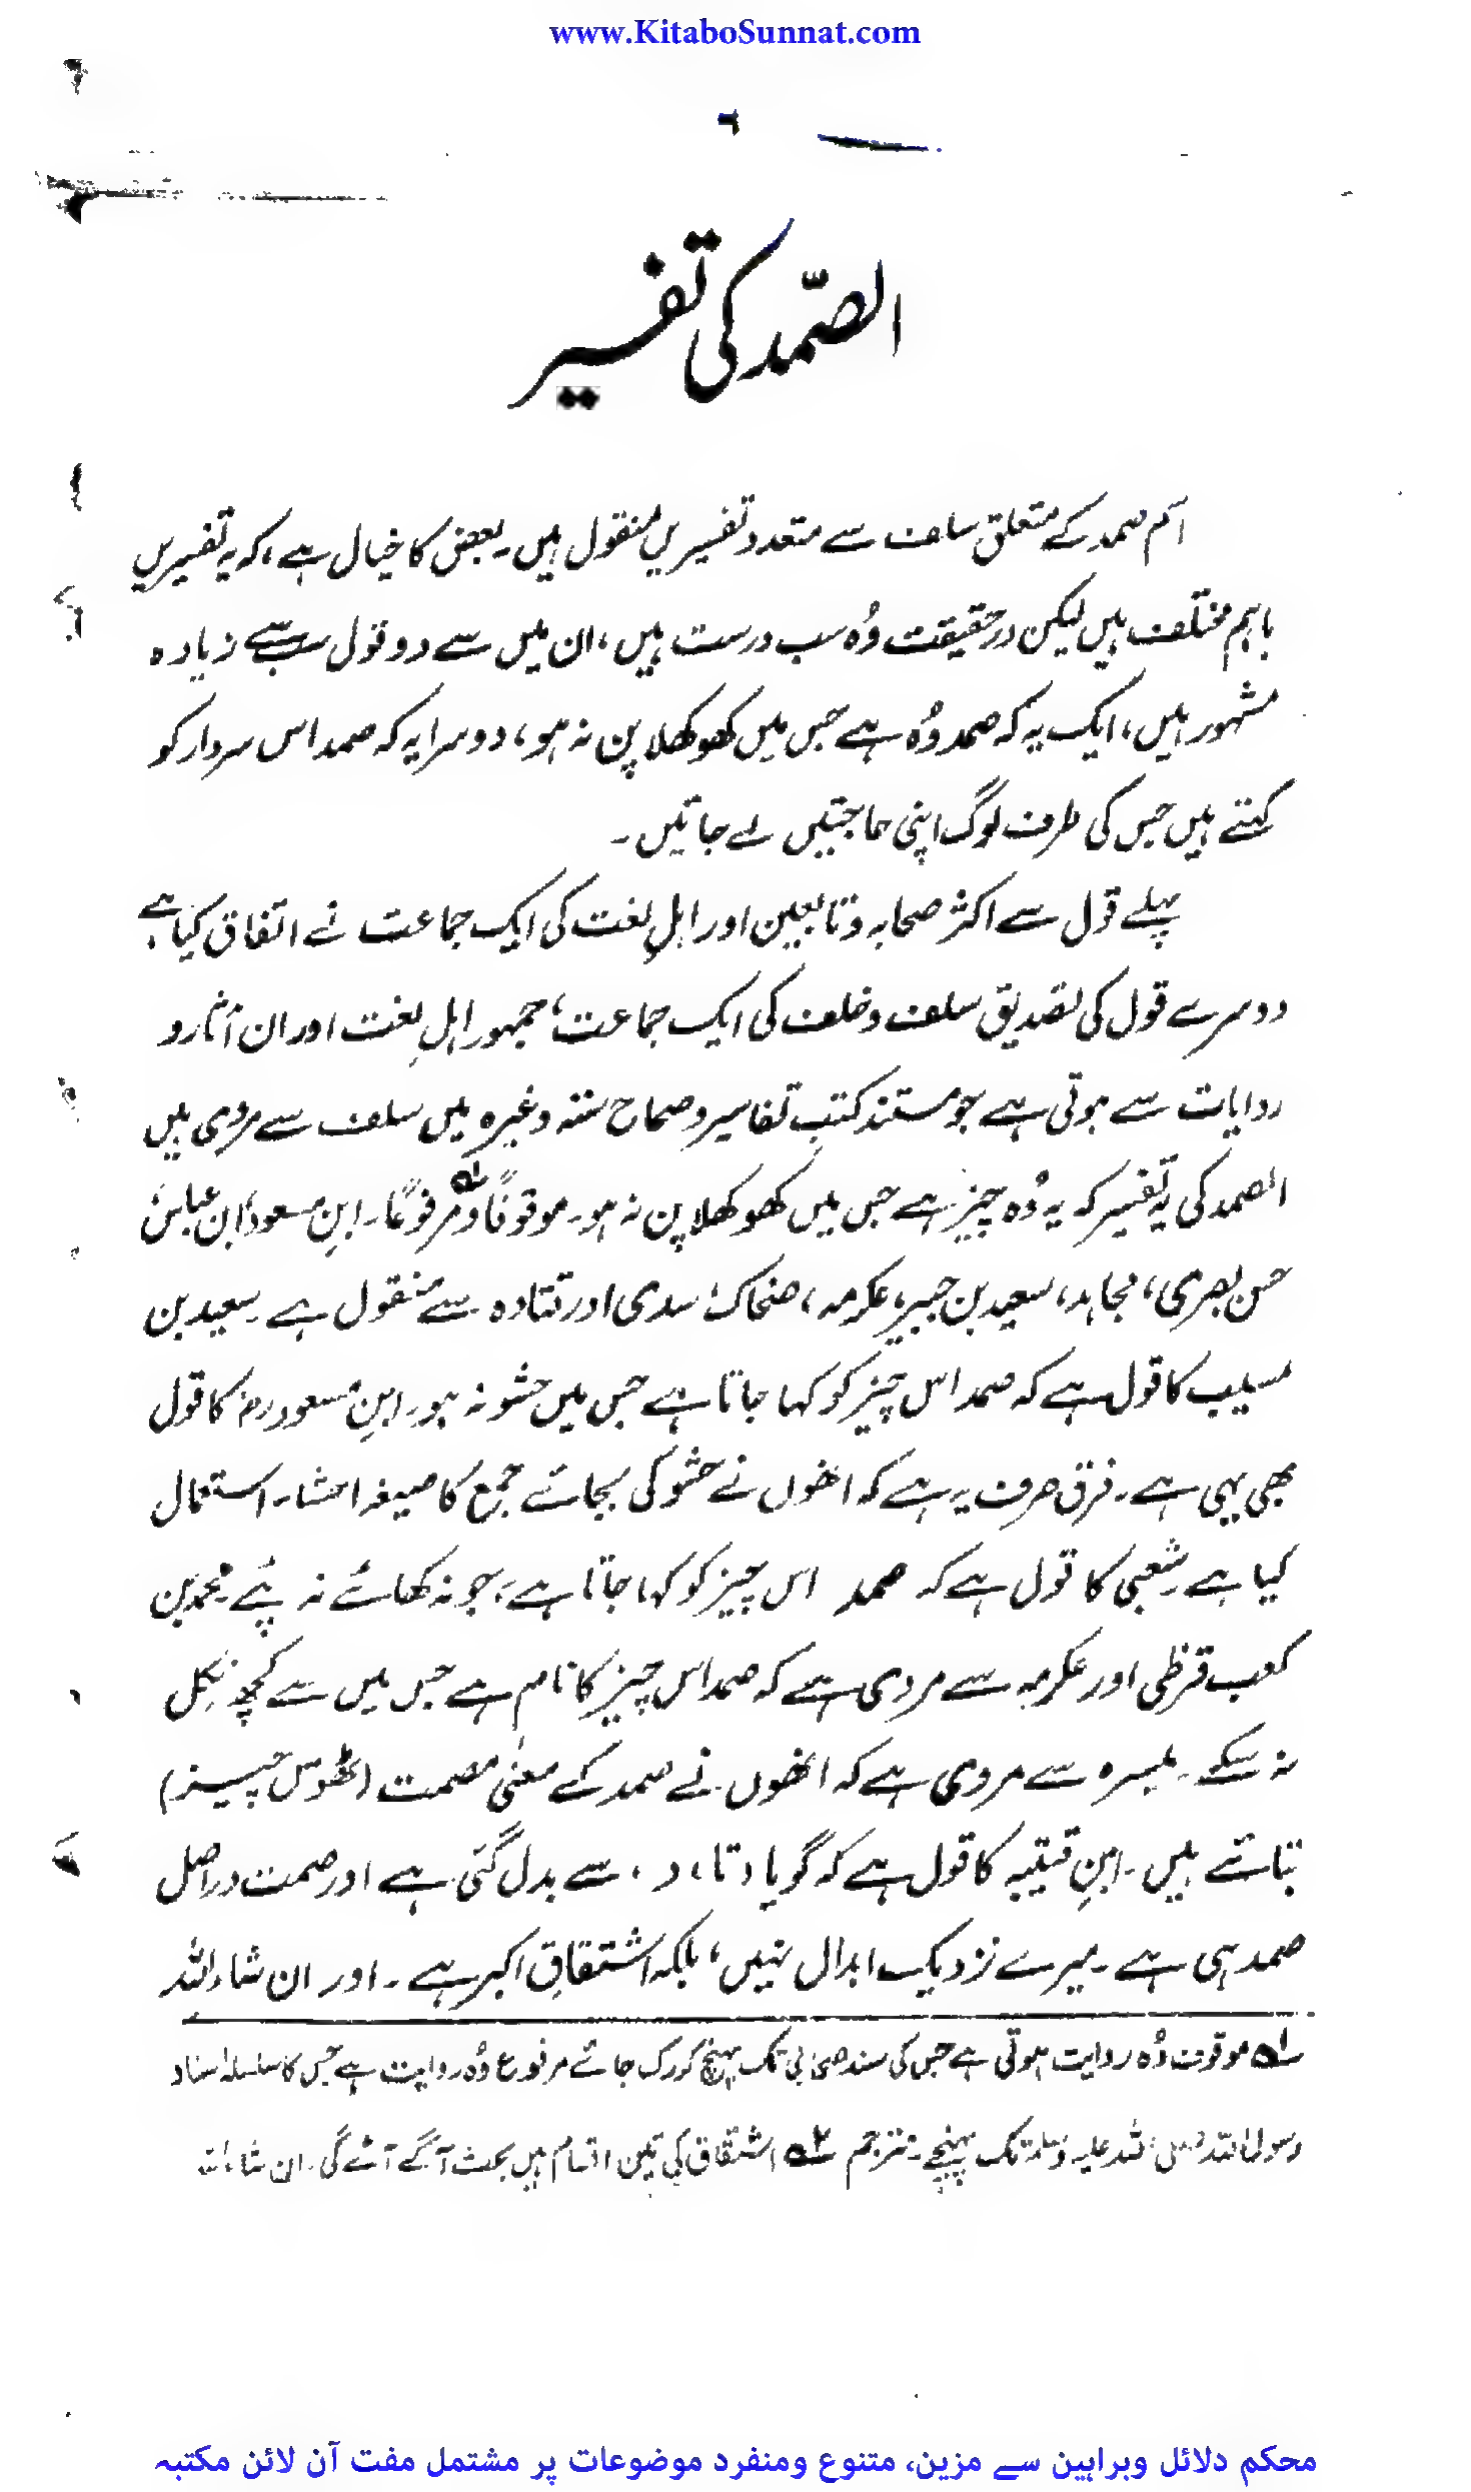 www.KitaboSunnat.com
۶
الصّمد کی تفسیر
اسم صمد کے متعلق سلف سے متعدد تفسیریں منقول ہیں۔ بعض کا خیال ہے، کہ یہ تفسیریں
باہم مختلف ہیں لیکن درحقیقت وُہ سب درست ہیں، ان میں سے دو قول سب سے زیادہ
مشہور ہیں، ایک یہ کہ صمد وُہ ہے جس میں کھوکھلا پن نہ ہو، دوسرا یہ کہ صمد اس سردار کو
کہتے ہیں جس کی طرف لوگ اپنی حاجتیں لے جائیں۔
پہلے قول سے اکثر صحابہ و تابعین اور اہلِ لغت کی ایک جماعت نے اتفاق کیا ہے
دوسرے قول کی تصدیق سلف و خلف کی ایک جماعت، جمہور اہلِ لغت اور ان آثار و
روایات سے ہوتی ہے جو مستند کتبِ تفاسیر و صحاح ستہ وغیرہ میں سلف سے مروی ہیں
الصمد کی یہ تفسیر کہ یہ وُہ چیز ہے جس میں کھوکھلا پن نہ ہو۔ موقوفًا و مرفوعًا۱؎۔ ابنِ مسعودؓ ابن عباسؓ
حسن بصری، مجاہد، سعید بن جبیر، عکرمہ، ضحاک، سدی اور قتادہ سے منقول ہے۔ سعید بن
مسیب کا قول ہے کہ صمد اس چیز کو کہا جاتا ہے جس میں حشو نہ ہو۔ ابنِ مسعود رضؓ کا قول
بھی یہی ہے۔ فرق صرف یہ ہے کہ انھوں نے حشو کی بجائے جمع کا صیغہ احشاء استعمال
کیا ہے۔ شعبی کا قول ہے کہ صمد اس چیز کو کہا جاتا ہے، جو نہ کھائے نہ پئے۔ محمد بن
کعب قرظی اور عکرمہ سے مروی ہے کہ صمد اس چیز کا نام ہے جس میں سے کچھ نکل
نہ سکے۔ میسرہ سے مروی ہے کہ انھوں نے صمد کے معنٰی مصمت (ٹھوس چیز)
بتائے ہیں۔ ابنِ قتیبہ کا قول ہے کہ گویا، تا، د، سے بدل گئی ہے اور صمت دراصل
صمد ہی ہے۔ میرے نزدیک ابدال نہیں، بلکہ اشتقاقِ اکبر ہے۔ اور ان شاء اللہ
۱؎ موقوف وُہ روایت ہوتی ہے جس کی سند صحابی تک پہنچ کر رک جائے مرفوع وُہ روایت ہے جس کا سلسلہ اسناد
رسول اللہ صلی اللہ علیہ وسلم تک پہنچے۔ مترجم ۲؎ اشتقاق کی تین اقسام ہیں بحث آگے آئے گی۔ ان شاء اللہ
محکم دلائل وبراہین سے مزین، متنوع ومنفرد موضوعات پر مشتمل مفت آن لائن مکتبہ